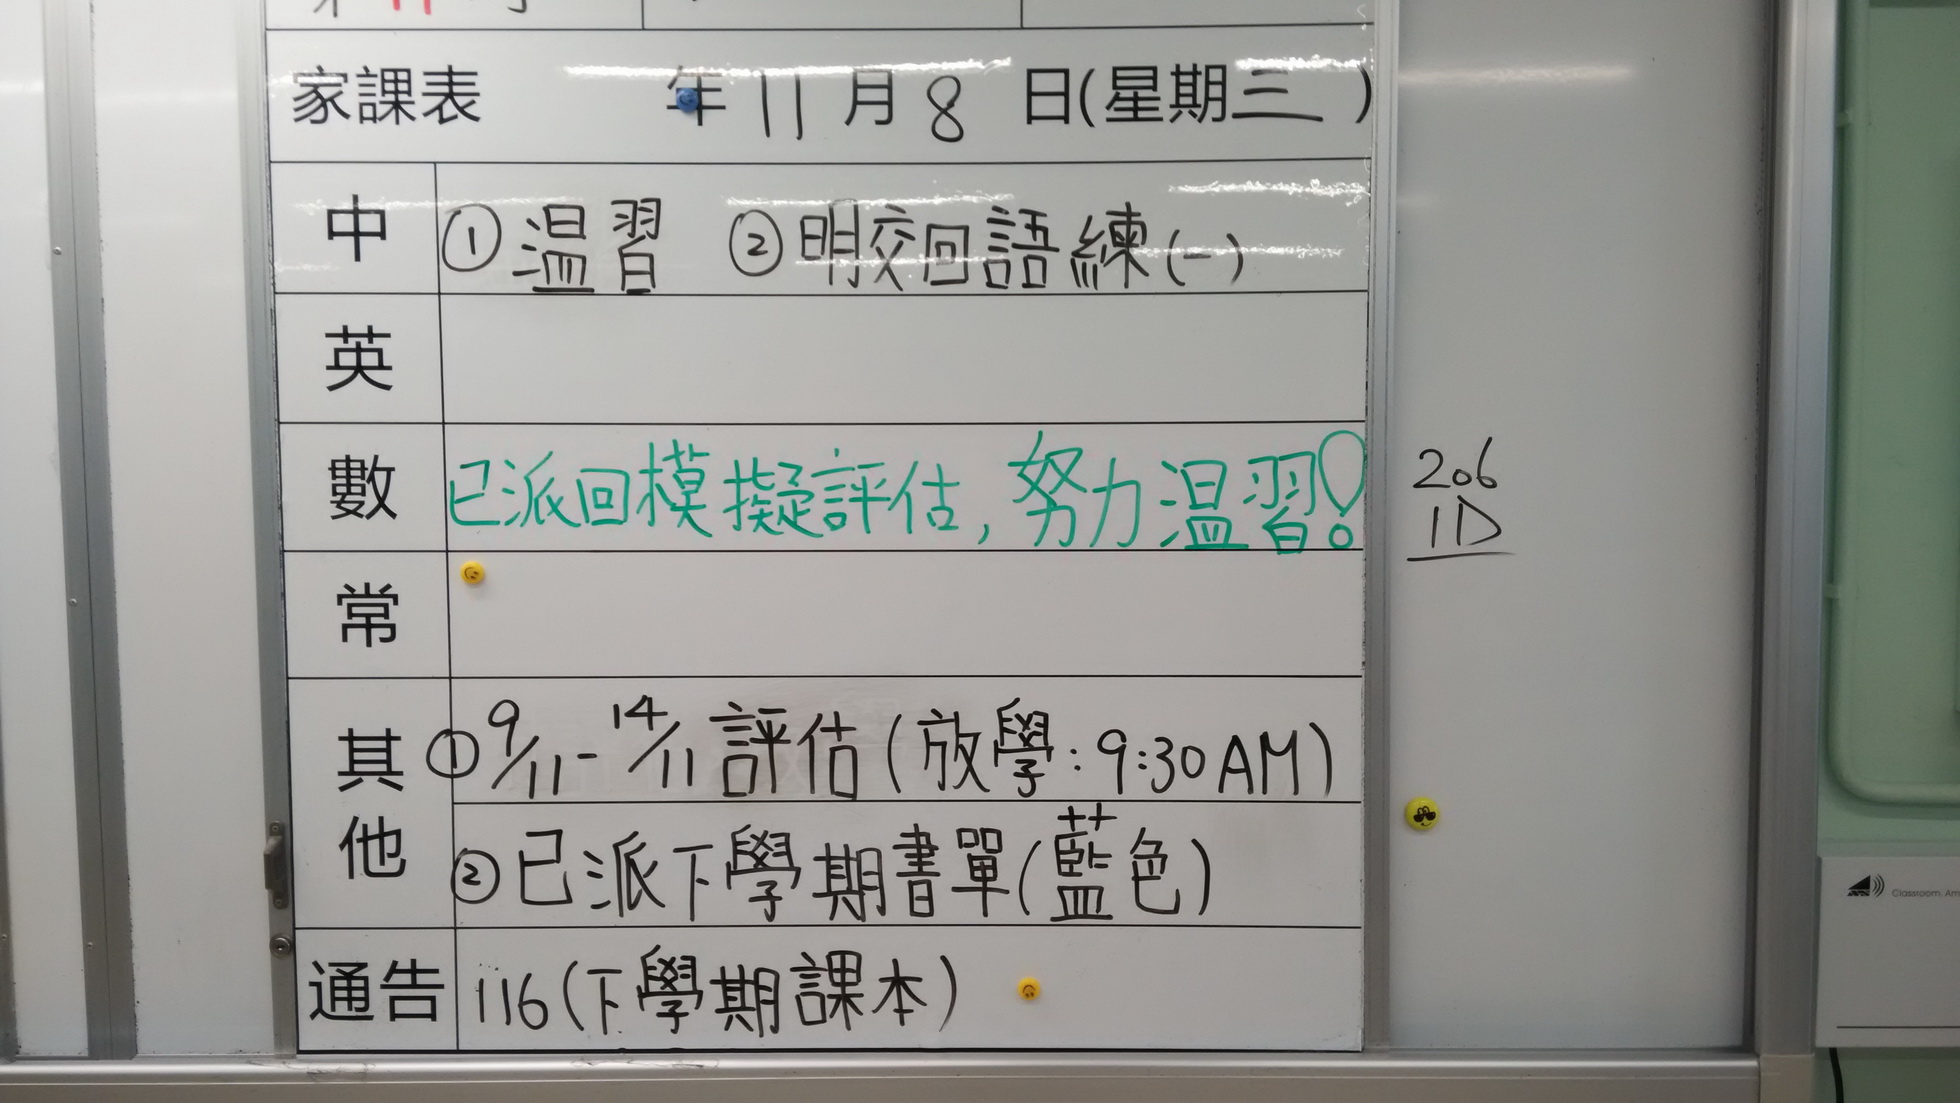 家課表 年 11 月 8 日(星期三)
中 ①温習 ②明交回語練(一)
英
數 已派回模擬評估,努力温習!
206
1D
常
其他 ①9/11-14/11評估(放學:9:30AM)
②已派下學期書單(藍色)
通告 116(下學期課本)